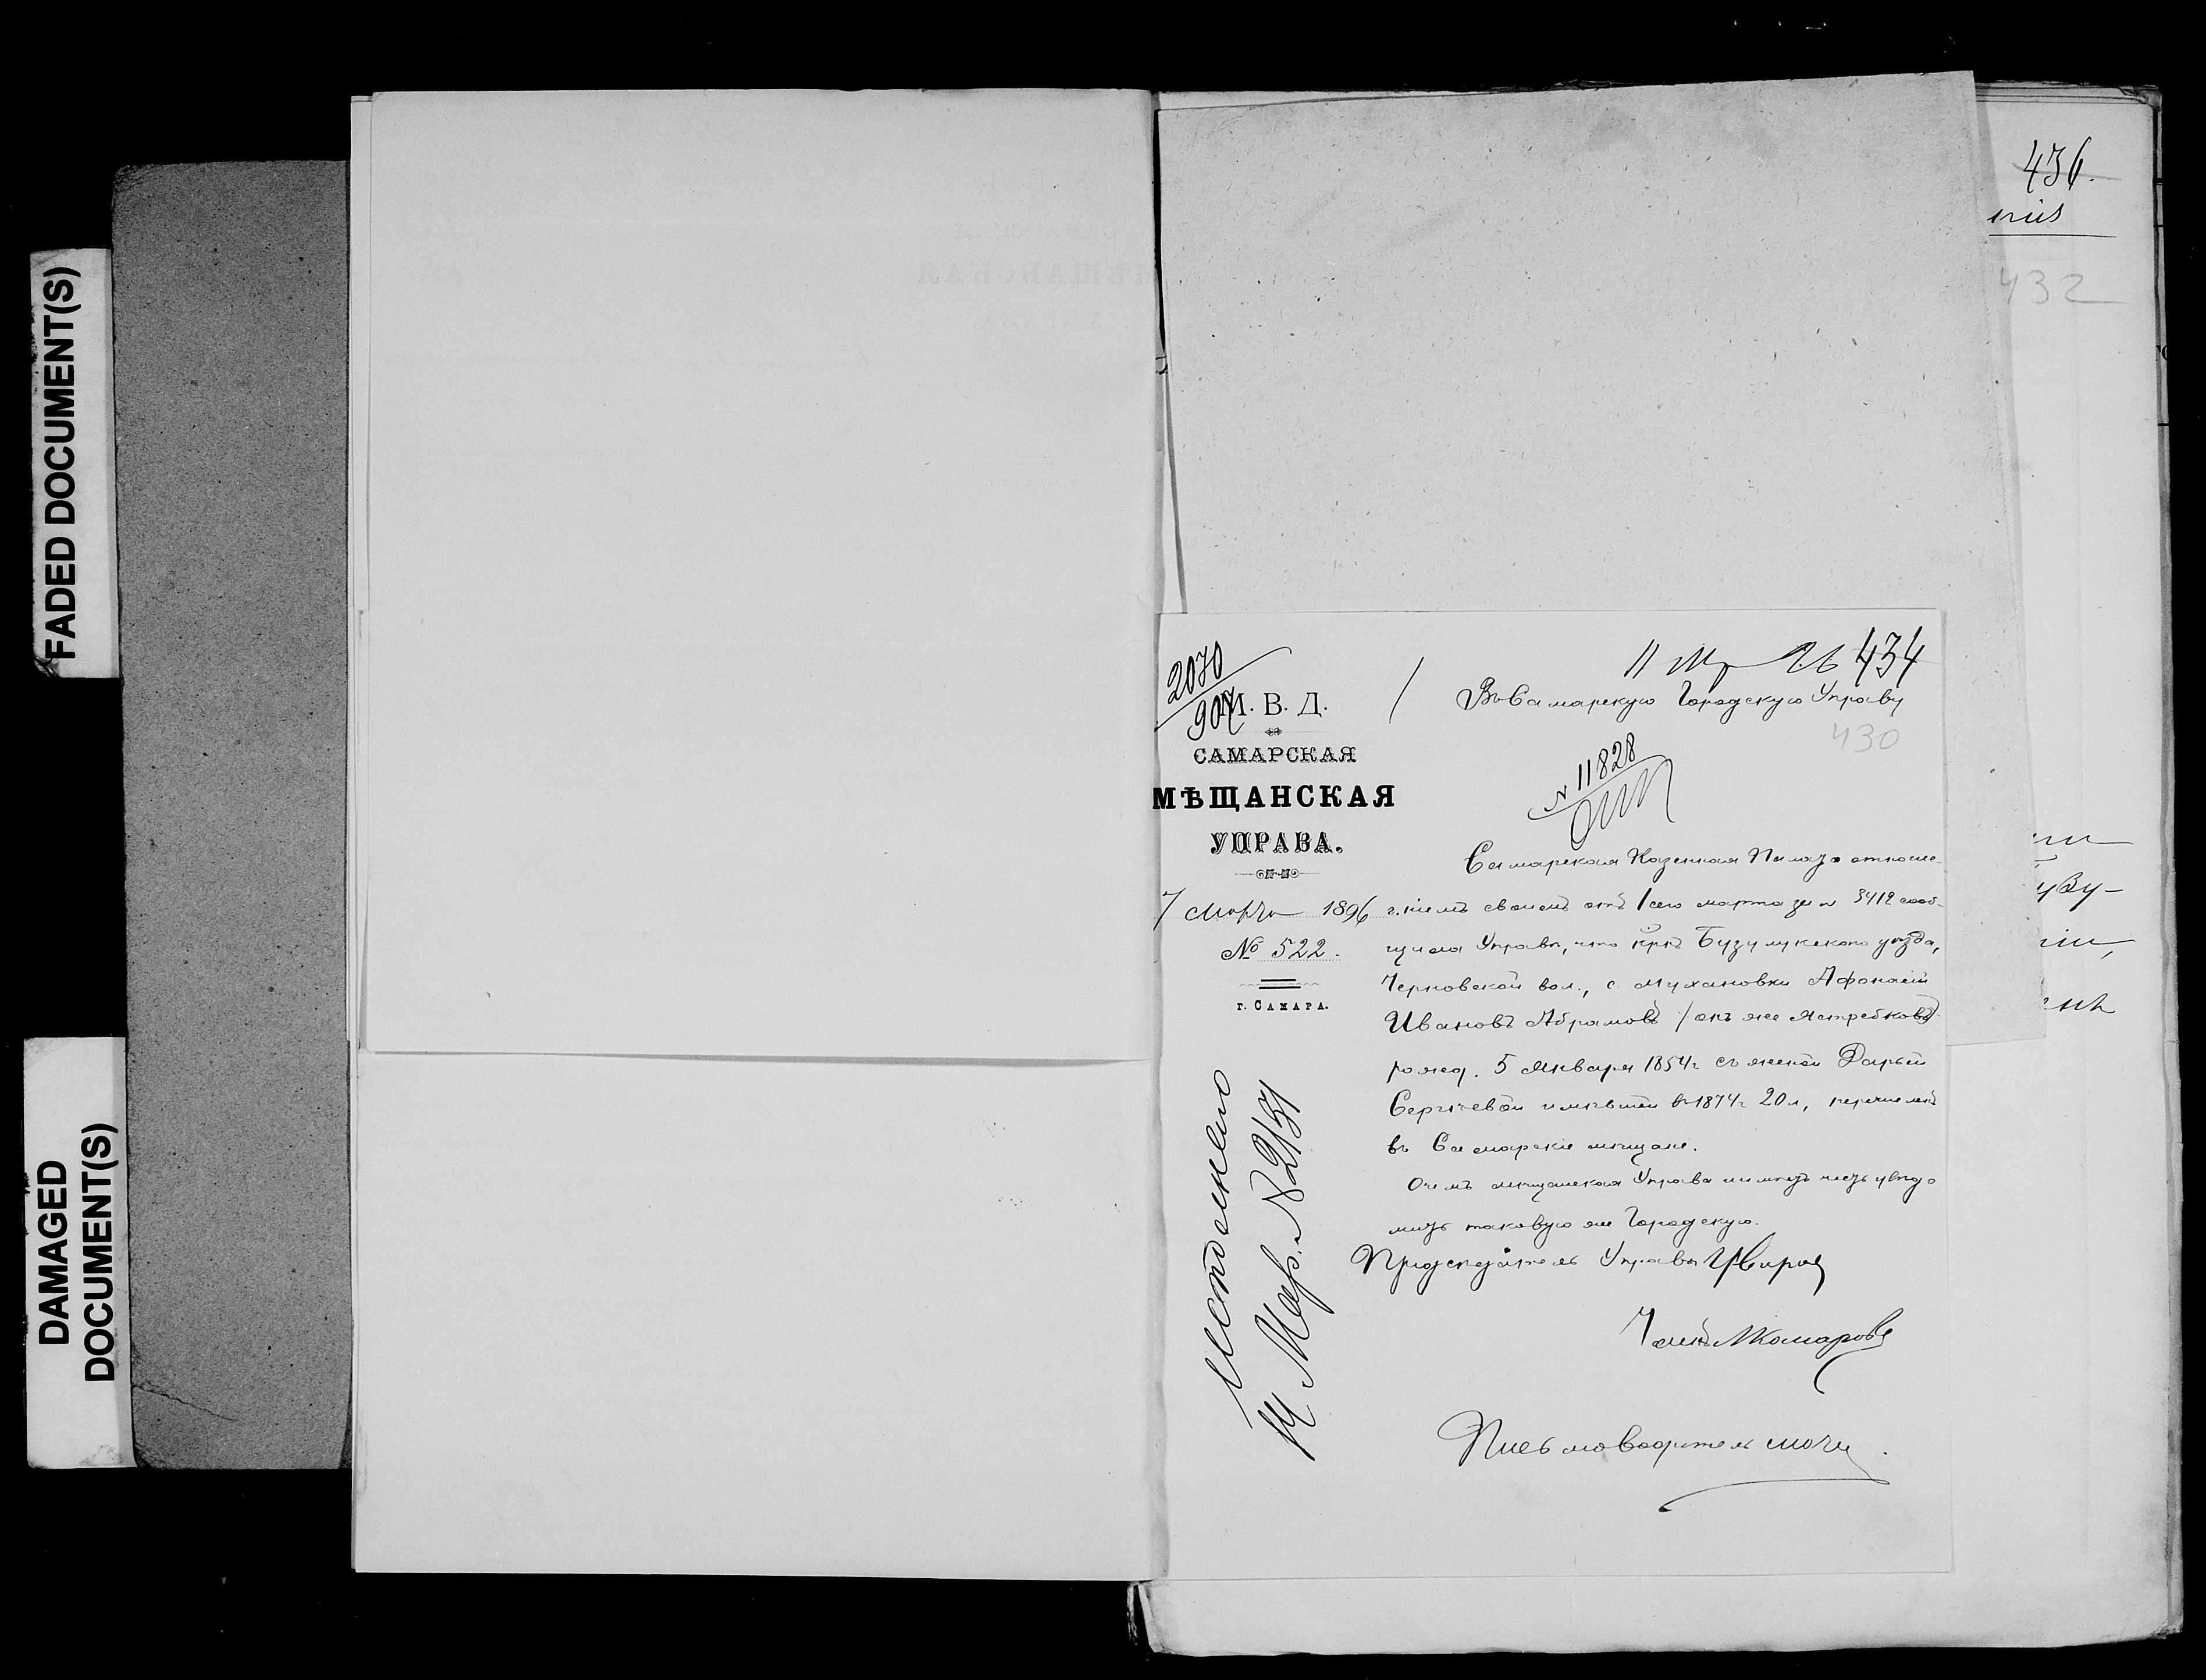 FADED DOCUMENT(S)
DAMAGED
DOCUMENT(S)
436.
432
2070
907
М. В. Д.
САМАРСКАЯ
МѢЩАНСКАЯ
УПРАВА.
7 Марта 1896 г.
№ 522.
г. САМАРА.
Исполнено
14 Мар. № 2151
11 Мр 96 434
Въ Самарскую Городскую Управу
430
№ 11828
Самарская Казенная Палата отноше-
ніемъ своимъ отъ 1 сего марта за № 3412 сооб-
щила Управѣ, что крн. Бузулукскаго уѣзда,
Черновской вол., с. Мухановки Афонасій
Ивановъ Абрамовъ / онъ же Ястребковъ
рожд. 5 Января 1854 г. съ женой Дарьей
Сергѣевой имѣвшей въ 1874 г. 20 л, перечисленъ
въ Самарскіе мѣщане.
О чемъ мѣщанская Управа имѣетъ честь увѣдо
мить таковую же Городскую.
Предсѣдатель Управы
Членъ Комаровъ
Письмоводитель